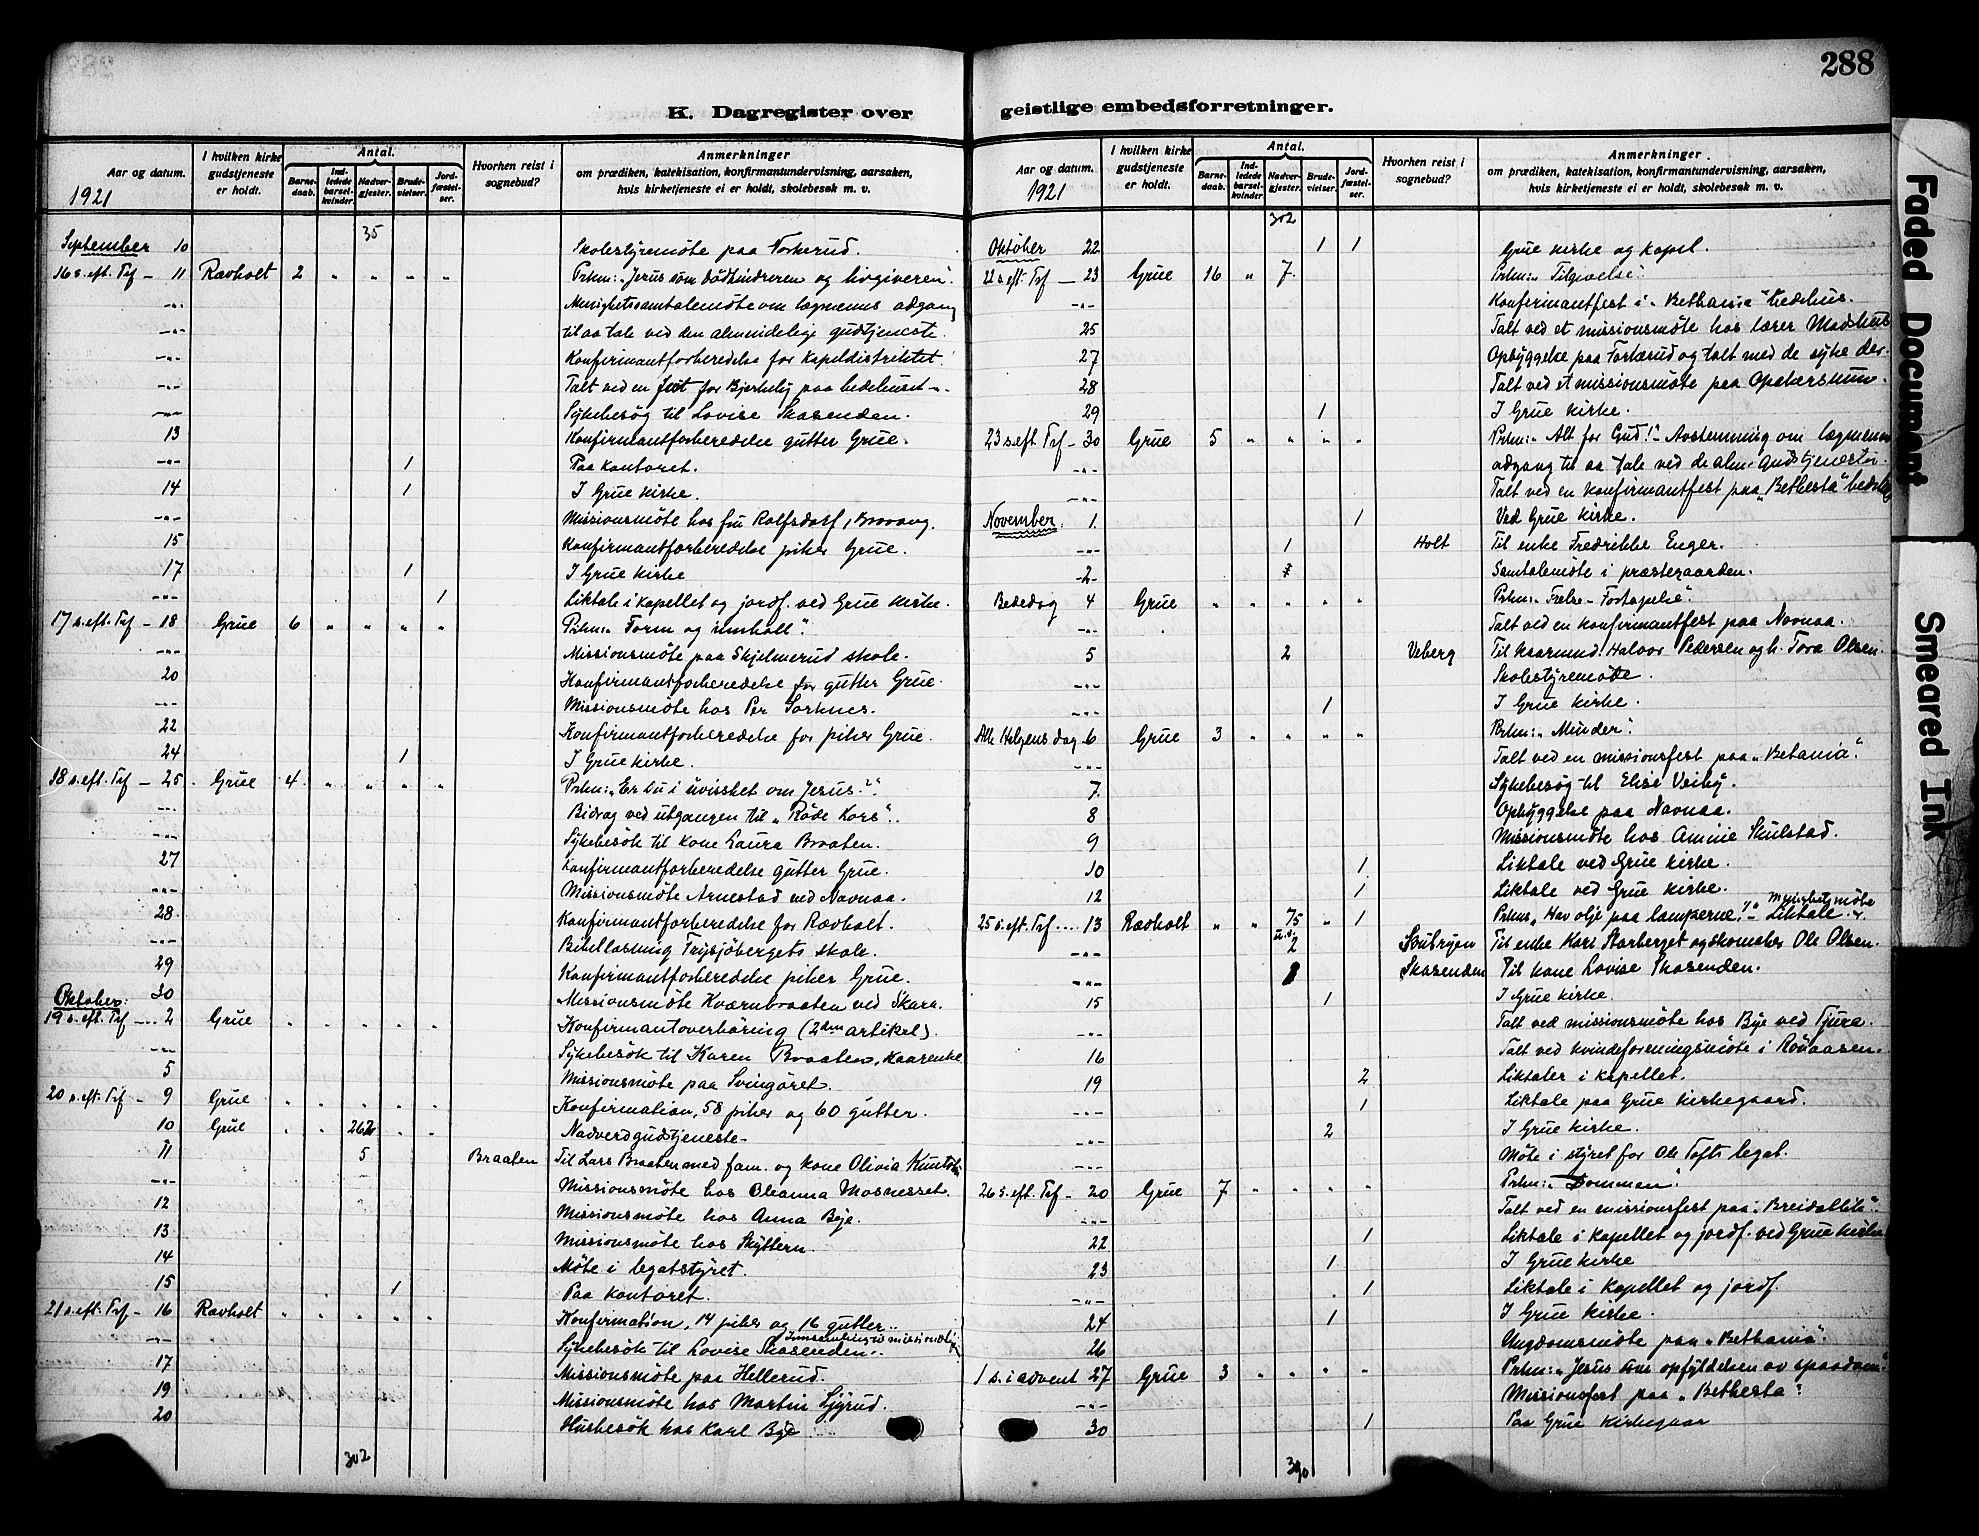 288
K. Dagregister over geistlige embedsforretninger.
Aar og datum.
1921
I hvilken kirke gudstjeneste er holdt.
Antal.
Barnedaab.
Indledede barselkvinder.
Nadvergjester.
Brudevielser.
Jordfæstelser.
Hvorhen reist i sognebud?
Anmerkninger
om prædiken, katekisation, konfirmantundervisning, aarsaken, hvis kirketjeneste ei er holdt, skolebesøk m. v.
35
September 10 Skolestyremöte paa Torkerud.
16 s. eft. Trf – 11 Ravholt 2 " " " " Prkn: "Jesus som dödhindreren og livgiveren".
-"- Menighetssamtalemöte om lægmenns adgang
-"- til aa tale ved den almindelige gudstjeneste.
-"- Konfirmantforberedelse for kapeldistriktet.
-"- Talt ved en fest for Bjerkely paa bedehuset
-"- Sykebesög til Lovise Skasenden.
13 Konfirmantforberedelse gutter Grue.
-"- 1 Paa kontoret.
14 1 I Grue kirke.
-"- Missionsmöte hos fru Rolfsdorf, Bravang.
15 Konfirmantforberedelse piker Grue.
17 1 I Grue kirke
-"- 1 Liktale i kapellet og jordf. ved Grue kirke.
17 s. eft. Trf – 18 Grue 6 " " " " Prkn: "Form og innholl".
-"- Missionsmöte paa Skjelmerud skole.
20 Konfirmantforberedelse for gutter Grue.
-"- Missionsmöte hos Per Sorknes.
22 Konfirmantforberedelse for piker Grue.
24 1 I Grue kirke.
18 s. eft. Trf – 25 Grue 4 " " " " Prkn: "Er du i uvisshet om Jesus?"
-"- Bidrag ved utgangen til "Röde Kors".
-"- Sykebesök til kone Laura Braaten.
27 Konfirmantforberedelse gutter Grue.
-"- Missionsmöte Arnestad ved Navnaa.
28 Konfirmantforberedelse for Ravholt.
-"- Bibellæsning Frysjöbergets skole.
29 Konfirmantforberedelse piker Grue.
30 Missionsmöte Kværnbraaten ved Skara.
Oktober:
19 s. eft. Trf – 2 Grue " " " " Konfirmantoverhöring (2den artikel).
-"- Sykebesök til Karen Braaten, kaarenke
5 Missionsmöte paa Svingöret.
20 s. eft. Trf – 9 Grue " " " " Konfirmation, 58 piker og 60 gutter.
10 Grue " " 262 " " Nadverdgudstjeneste
11 5 Braaten Til Lars Braaten med fam. og kone Olivia
-"- Missionsmöte hos Oleanna Mosnesset.
12 Missionsmöte hos Anna Bye.
13 Missionsmöte hos Skyttern.
14 Möte i legatstyret.
15 1 Paa kontoret.
21 s. eft. Trf – 16 Ravholt " " " " Konfirmation, 14 piker og 16 gutter.
-"- Sykebesök til Lovise Skasenden.
17 Missionsmöte paa Hellerud.
19 Missionsmöte hos Martin Sjyrud.
20 Husbesök hos Karl Bye
302
Aar og datum.
1921
I hvilken kirke gudstjeneste er holdt.
Antal.
Barnedaab.
Indledede barselkvinder.
Nadvergjester.
Brudevielser.
Jordfæstelser.
Hvorhen reist i sognebud?
Anmerkninger
om prædiken, katekisation, konfirmantundervisning, aarsaken, hvis kirketjeneste ei er holdt, skolebesøk m. v.
302
Oktober 22 1 1 Grue kirke og kapel.
22 s. eft. Trf – 23 Grue 16 " 7 Prkn: "Tilgivelse".
-"- Konfirmantfest i "Bethania" bedehus.
25 Talt ved et missionsmöte hos lærer Madshus
27 Opbyggelse paa Forkerud og talt med de syke der.
28 Talt ved et missionsmöte paa
29 1 I Grue kirke.
23 s. eft. Trf – 30 Grue 5 " " " " Prkn: "Alt for Gud!" – Avstemning om lægmenns
-"- adgang til aa tale ved de alm. Gudstjenester.
-"- Talt ved en konfirmantfest paa "Bethesta" bedehus
November 1. 1 Ved Grue kirke.
-"- 1 Holt Til enke Fredrikke Enger.
-2- Samtalemöte i præstegaarden.
Bededag 4 Grue " " " " " Prkn: "Frelse – Fortapelse".
-"- Talt ved en konfirmantfest paa Navnaa.
5 2 Veberg Til kaarmand Halvor Pedersen og h. Tora Olsen.
-"- Skolestyremöte.
-"- 1 I Grue kirke.
Alle Helgens dag 6 Grue 3 " " " " Prkn: "Minder".
-"- Talt ved en missionsfest paa "Betania".
7. Sykebesög til Elise Veiby.
8 Opbyggelse paa Navnaa.
9 Missionsmöte hos Aminie Skulstad.
10 1 Liktale ved Grue kirke.
12 1 Liktale ved Grue kirke.
25 s. eft. Trf .... 13 Ravholt " " 75 " 1 Prkn: "Hav olje paa lamperne!" – menighetsmöte Liktale
-"- 2 Til enke Kari Storberget og skomaker Ole Olsen.
-"- Skasenden Til kone Lovise Skasenden.
15 1 I Grue kirke.
-"- Talt ved missionsmöte hos Bye ved Tjura.
16 Talt ved kvindeforeningsmöte i Rönaasen.
19 2 Liktaler i kapellet.
-"- 1 Liktale paa Grue kirkegaard.
-"- 2 I Grue kirke.
-"- Möte i styret for Ole Tofts legat.
26 s. eft. Trf – 20 Grue 7 " " " " Prkn: "Dommen".
-"- Talt ved en missionsfest paa "Breidablik".
22 1 Liktale i kapellet og jordf. ved Grue kirke
23 1 I Grue kirke
-"- 1 Liktale i kapellet og jordf.
24 1 I Grue kirke.
26 Ungdomsmöte paa "Bethania".
1 s. i advent 27 Grue 3 " " " " Prkn: "Jesus som opfyldelsen av spaadom."
-"- Missionsfest paa "Bethesta".
30 1 Paa Grue kirkegaar
390
Faded Document
Smeared Ink